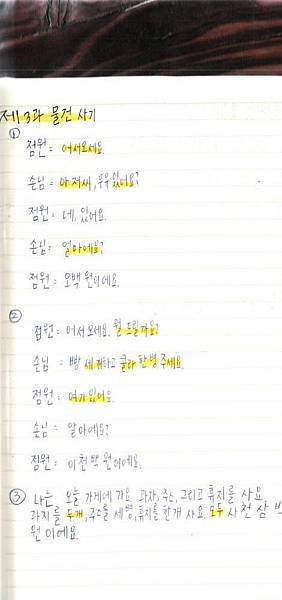 제13과 물건 사기
①
점원 = 어서오세요.
손님 = 아저씨, 우유 있어요?
점원 : 네, 있어요.
손님 : 얼마에요?
점원 : 오백 원이에요.
②
점원 : 어서오세요. 뭘 드릴까요?
손님 : 빵 세 개하고 콜라 한 병 주세요.
점원 : 여기 있어요.
손님 = 얼마에요?
점원 : 이천 백 원이에요.
③ 나는 오늘 가게에 가요. 과자, 주스, 그리고 휴지를 사요.
과자를 두개, 주스를 세 병, 휴지를 한개 사요. 모두 사 천 삼 백
원 이에요.